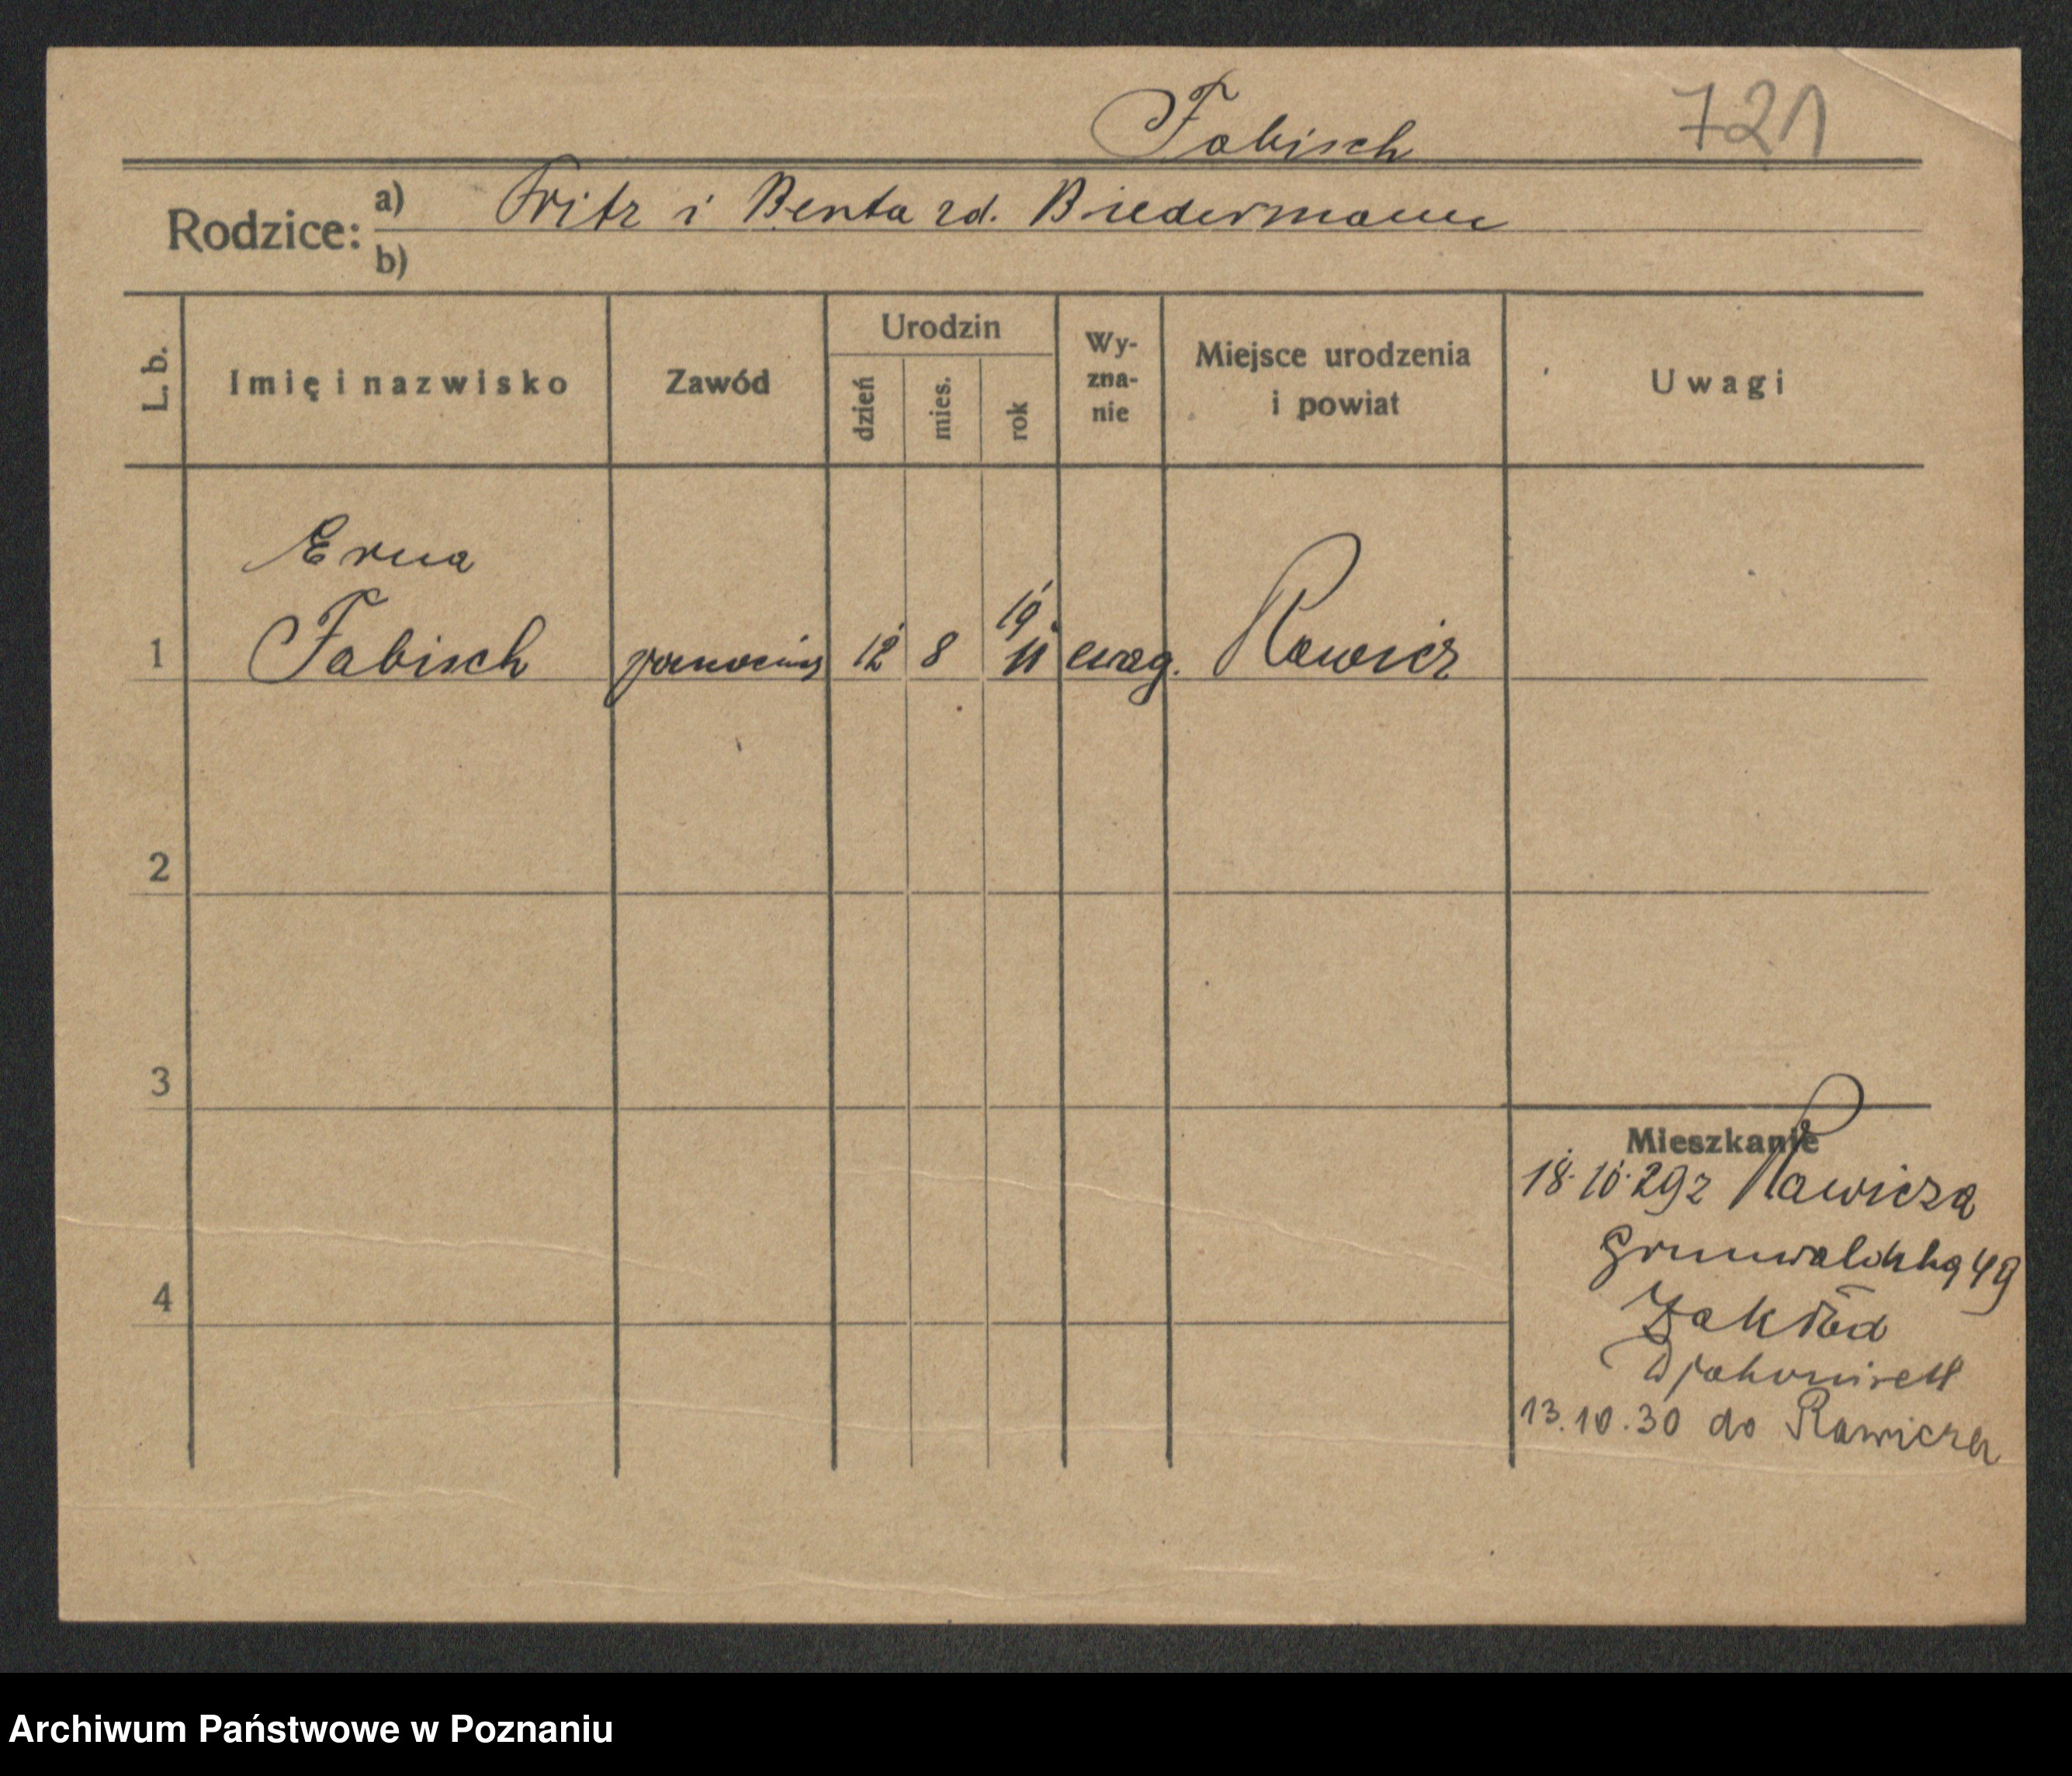 Fabisch 721
Rodzice: a) Fritz i Berta zd. Biedermann
b)
L. b. Imię i nazwisko Zawód Urodzin dzień mies. rok Wy-zna-nie Miejsce urodzenia i powiat Uwagi
Erna
1 Fabisch 12 8 19 11 ewag. Rawicz
2
3
Mieszkanie
18.10.29 z Rawicza
Grunwaldzka 49
4 Zakład
13.10.30 do Rawicza
Archiwum Państwowe w Poznaniu